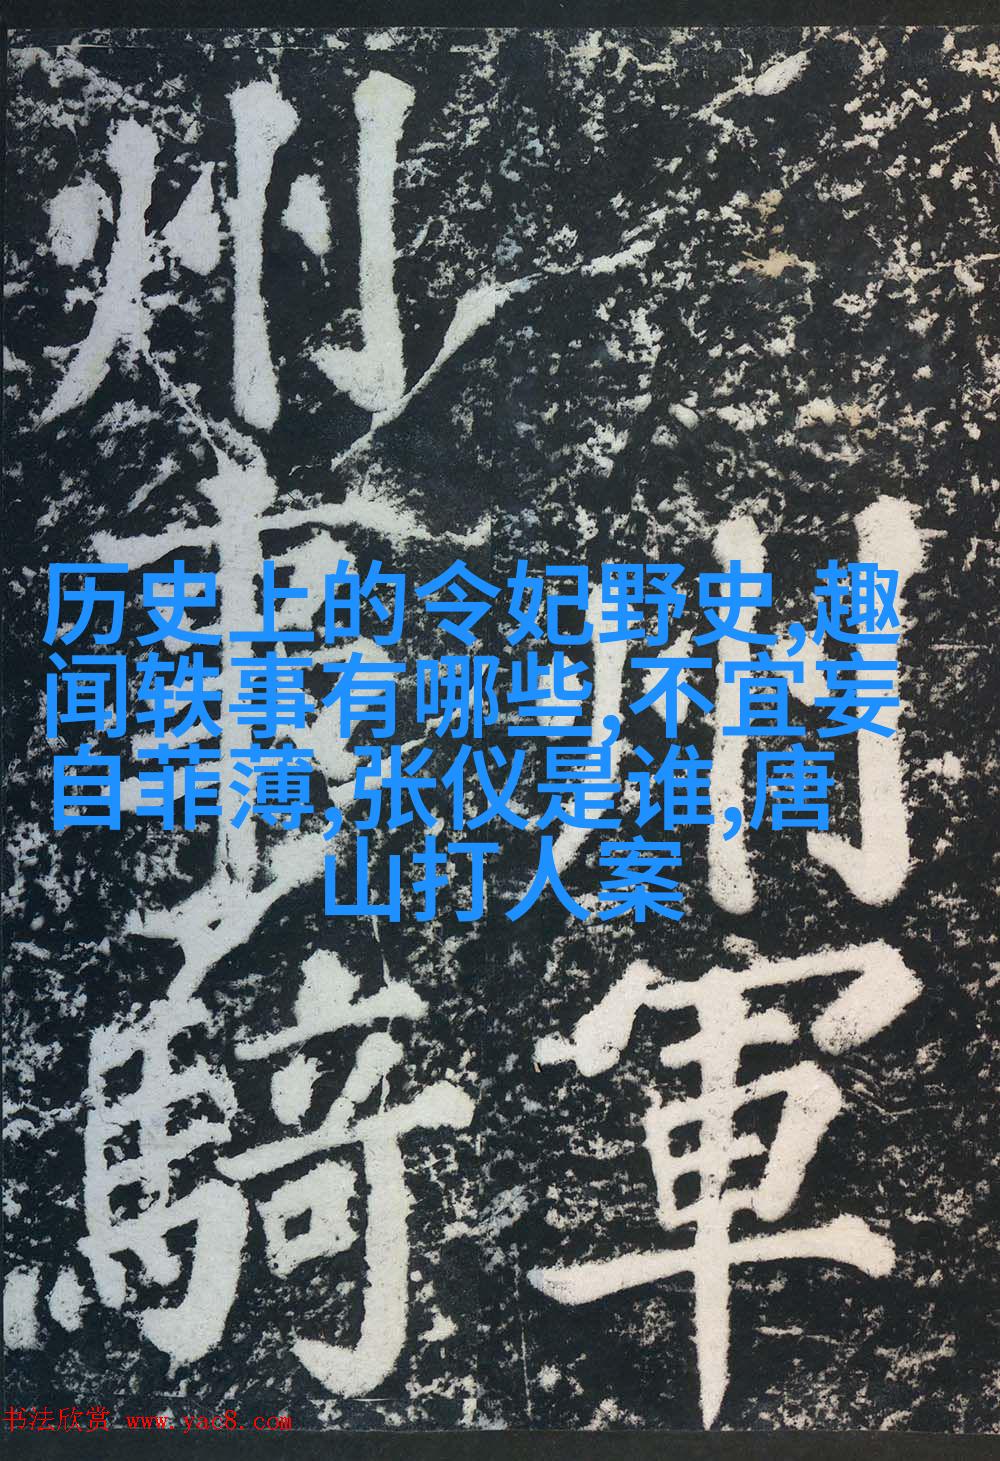 州事
騎
川
軍
历史上的令妃野史,趣
闻轶事有哪些,不宜妄
自菲薄,张仪是谁,唐
山打人案
书法欣赏 www.yac8.com